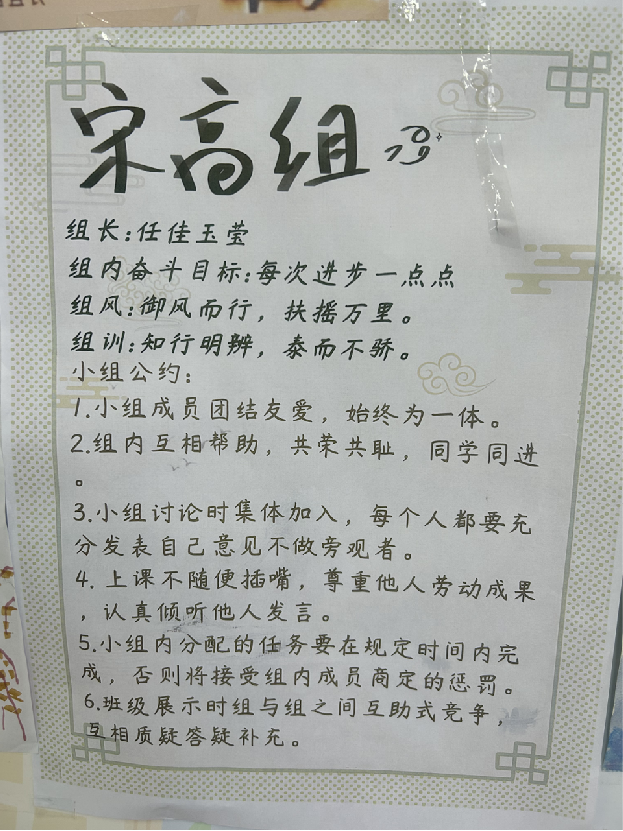 宋高组
组长:任佳玉莹
组内奋斗目标:每次进步一点点
组风:御风而行，扶摇万里。
组训:知行明辨，泰而不骄。
小组公约:
1.小组成员团结友爱，始终为一体。
2.组内互相帮助，共荣共耻，同学同进
。
3.小组讨论时集体加入，每个人都要充
分发表自己意见不做旁观者。
4. 上课不随便插嘴，尊重他人劳动成果
，认真倾听他人发言。
5.小组内分配的任务要在规定时间内完
成，否则将接受组内成员商定的惩罚。
6.班级展示时组与组之间互助式竞争，
互相质疑答疑补充。